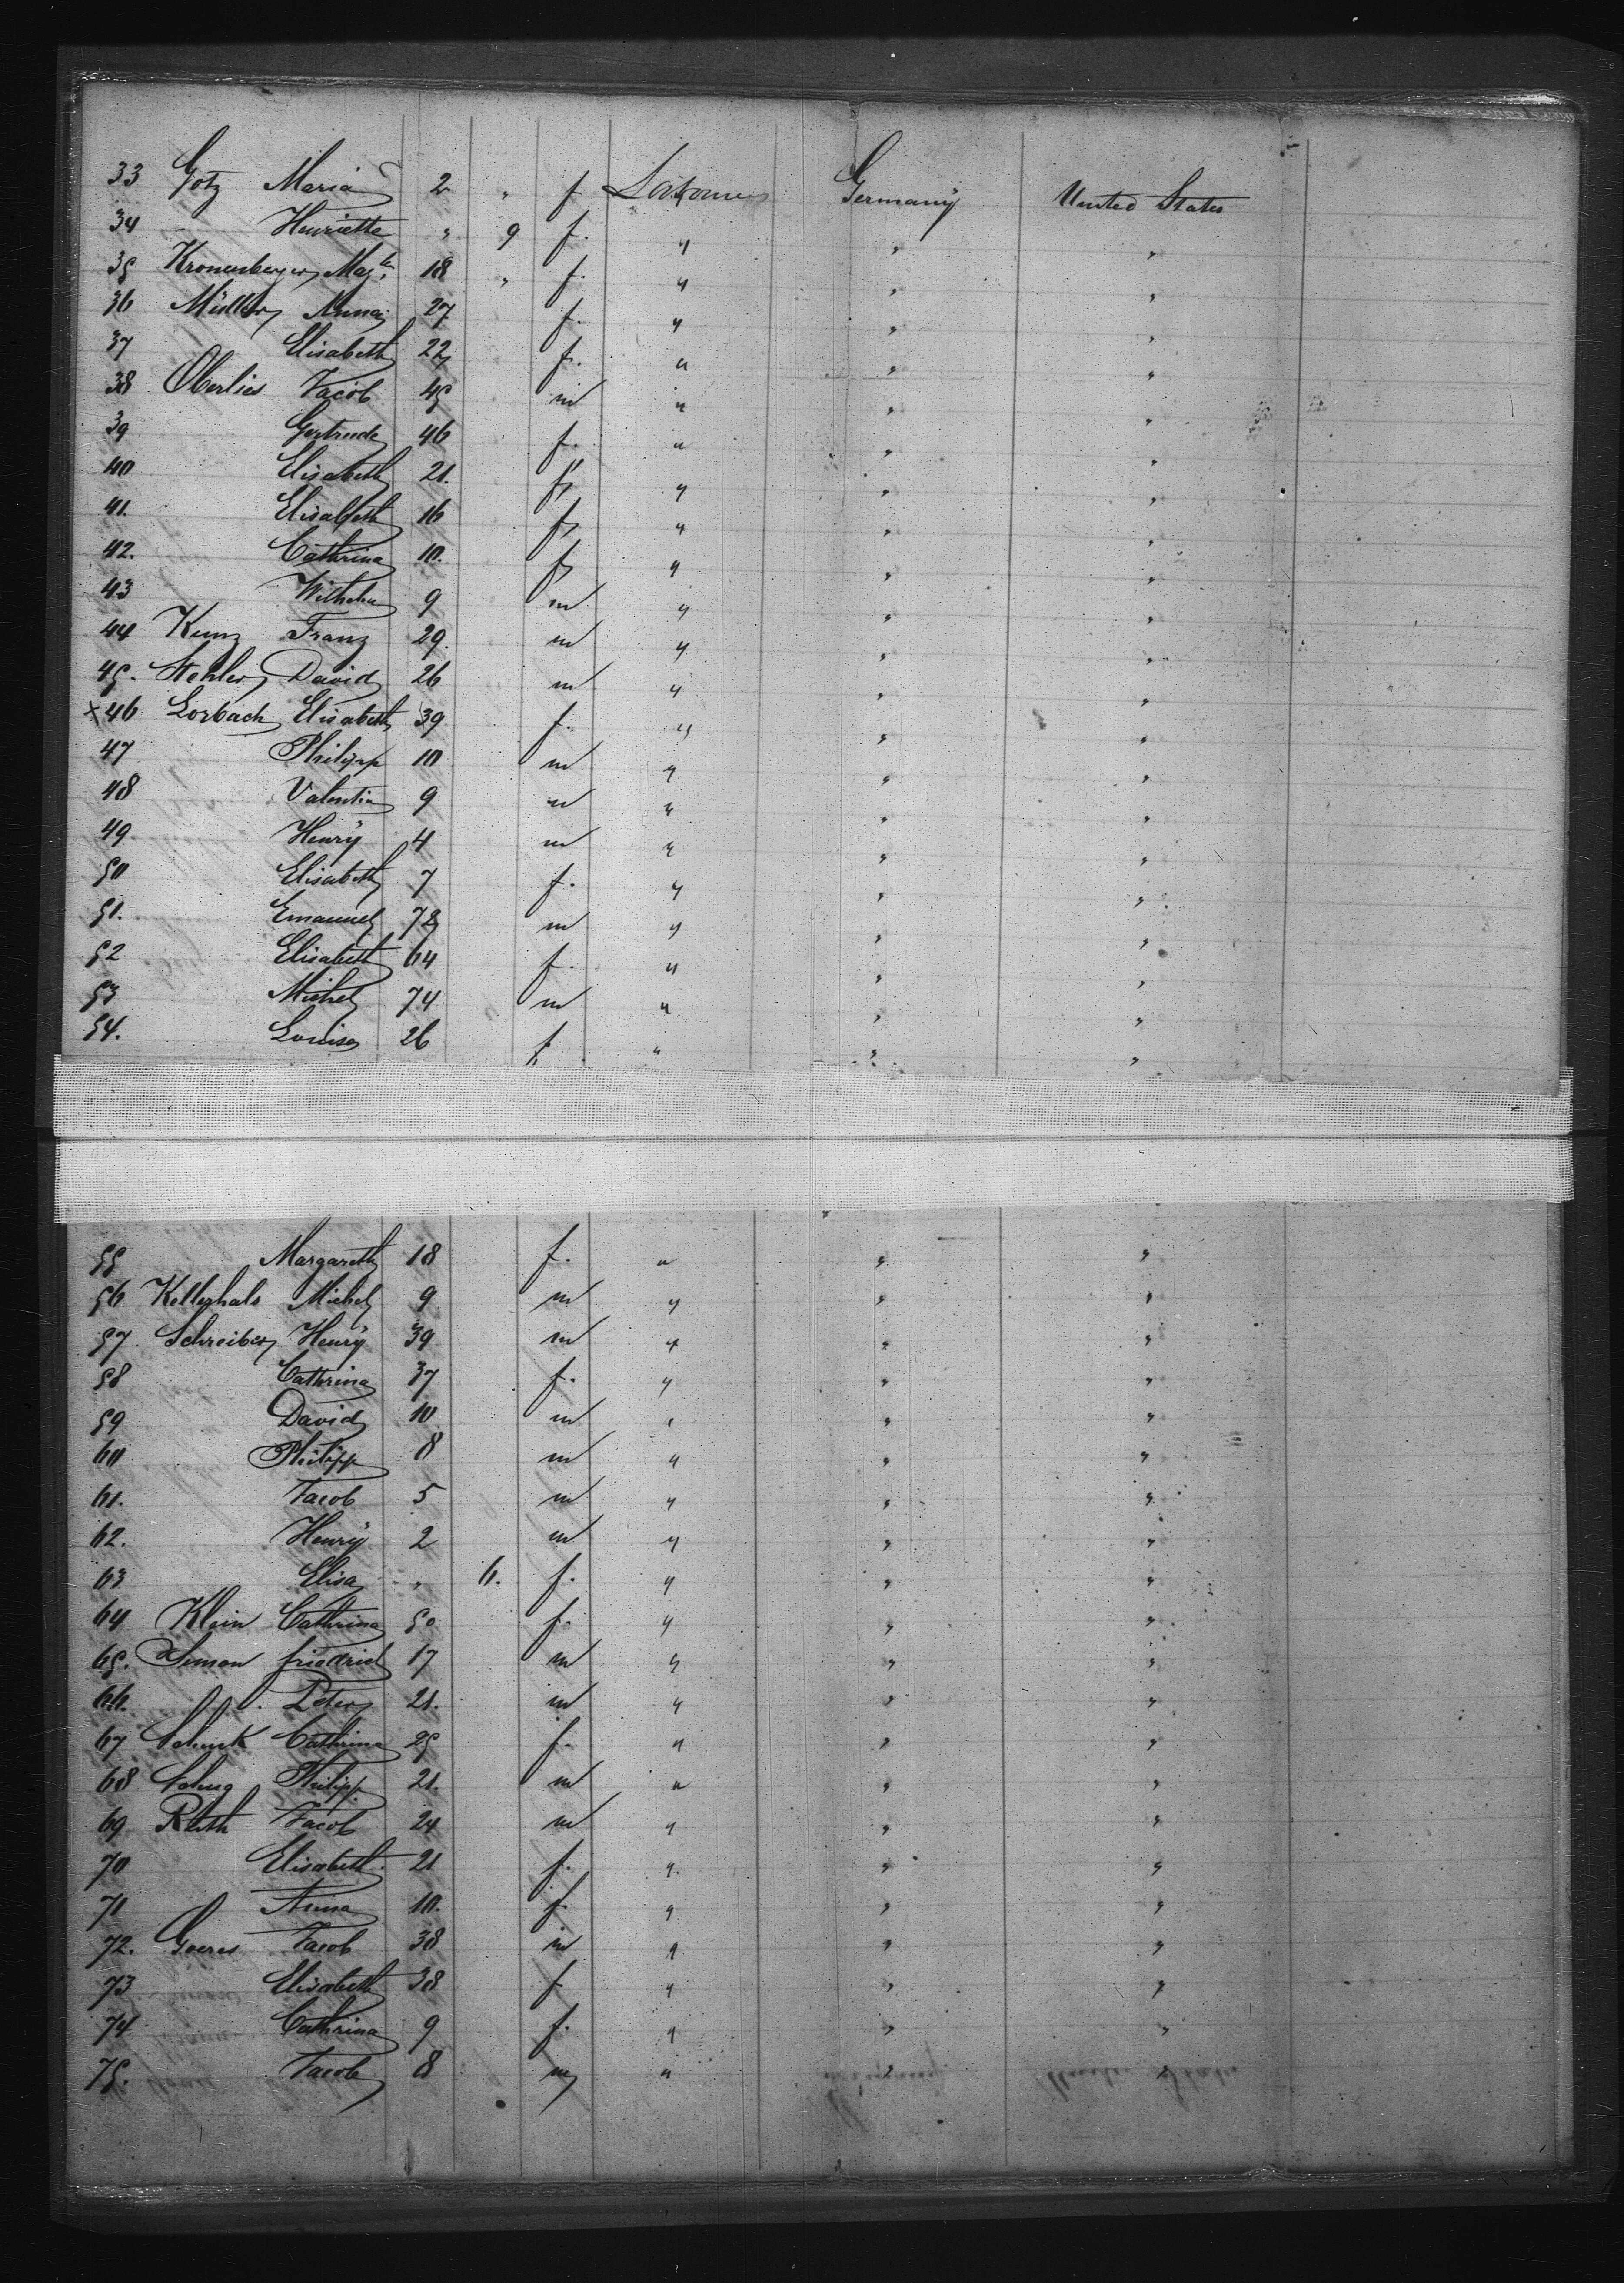 33 Götz Maria 2 " f Laborours Germany United States
34 Henriette " 9 f. " " "
35 Kronenberger, Magte. 18 " f. " " "
36 Müller Anna 27 f. " " "
37 Elisabeth 22 f. " " "
38 Oberlies Jacob 45 m " " "
39 Gertrude 46 f. " " "
40 Elisabeth 21. f " " "
41. Elisabeth 16 f " " "
42. Cathrina 10. f " " "
43 Wilhelm 9 m " " "
44 Kunz Franz 29. m " " "
45. Stehler David 26 m " " "
x46 Lorbach Elisabeth 39 f. " " "
47 Philipp 10 m " " "
48 Valentin 9 m " " "
49. Henry 4 m " " "
50 Elisabeth 7 f. " " "
51. Emanuel 72 m " " "
52 Elisabeth 64 f. " " "
53 Michel 74 m " " "
54. Louise 26 f. " " "
55 Margareth 18 f. " " "
56 Kellerhals Michel 9 m " " "
57 Schreiber Henry 39 m " " "
58 Cathrina 37 f. " " "
59 David 10 m " " "
60 Philipp 8 m " " "
61. Jacob 5 m " " "
62. Henry 2 m " " "
63 Elisa " 6. f. " " "
64 Klein Cathrina 50 f. " " "
65. Simon friedrich 17 m " " "
66. Peter 21. m " " "
67 Schunk Cathrina 25 f. " " "
68 Schug Philipp 21. m " " "
69 Ruth Jacob 24 m " " "
70 Elisabeth 21 f. " " "
71 Anna 10. f. " " "
72. Goeres Jacob 38 m " " "
73 Elisabeth 38 f " " "
74 Cathrina 9 f. " " "
75. Jacob 8 m " " "